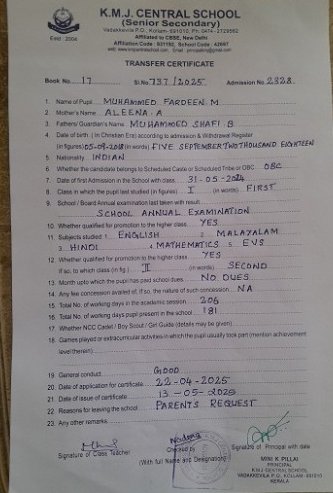 K.M.J. CENTRAL SCHOOL
(Senior Secondary)
Vadakkevila P.O., Kollam-691010, Ph: 0474 - 2729562
Affiliated to CBSE, New Delhi
Affiliation Code : 931192, School Code : 42697
Estd : 2004
TRANSFER CERTIFICATE
Book No. 17 Sl.No 737/2025 Admission No. 2328
1. Name of Pupil MUHAMMED FARDEEN. M
2. Mother's Name ALEENA. A
3. Fathers/ Guardian's Name MUHAMMED SHAFI. B
4. Date of birth ( In Christian Era) according to admission & Withdrawal Register
(in figures) 05-09-2018 (in words) FIVE SEPTEMBER TWO THOUSAND EIGHTEEN
5. Nationality INDIAN
6. Whether the candidate belongs to Scheduled Caste or Scheduled Tribe or OBC OBC
7. Date of first Admission in the School with class 31-05-2024
8. Class in which the pupil last studied (in figures) I (in words) FIRST
9. School / Board Annual examination last taken with result
SCHOOL ANNUAL EXAMINATION
10. Whether qualified for promotion to the higher class YES
11. Subjects studied 1. ENGLISH 2. MALAYALAM
3. HINDI 4. MATHEMATICS 5. EVS
12. Whether qualified for promotion to the higher class YES
If so, to which class (in fig.) II (in words) SECOND
13. Month upto which the pupil has paid school dues NO DUES
14. Any fee concession availed of, if so, the nature of such concession NA
15. Total No. of working days in the academic session 206
16. Total No. of working days pupil present in the school 181
17. Whether NCC Cadet / Boy Scout / Girl Guide (details may be given)
18. Games played or extracurricular activities in which the pupil usually took part (mention achievement
level therein)
19. General conduct GOOD
20. Date of application for certificate 22-04-2025
21. Date of issue of certificate 13-05-2025
22. Reasons for leaving the school PARENTS REQUEST
23. Any other remarks
Signature of Class Teacher
Checked by
(With full Name and Designation)
Signature of Principal with date
MINI K. PILLAI
PRINCIPAL
K.M.J. CENTRAL SCHOOL
VADAKKEVILA P.O., KOLLAM-691010
KERALA